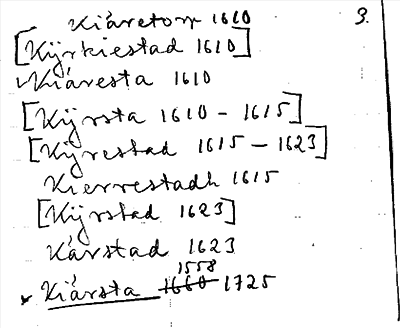 Kiäretorp 1610 3.
[Kijrkiestad 1610]
Kiäresta 1610
[Kijrsta 1610 - 1615]
[Kijrestad 1615 - 1623]
Kierrestadh 1615
[Kijrstad 1623]
Kärstad 1623
1558
Kiärsta 1660 1725